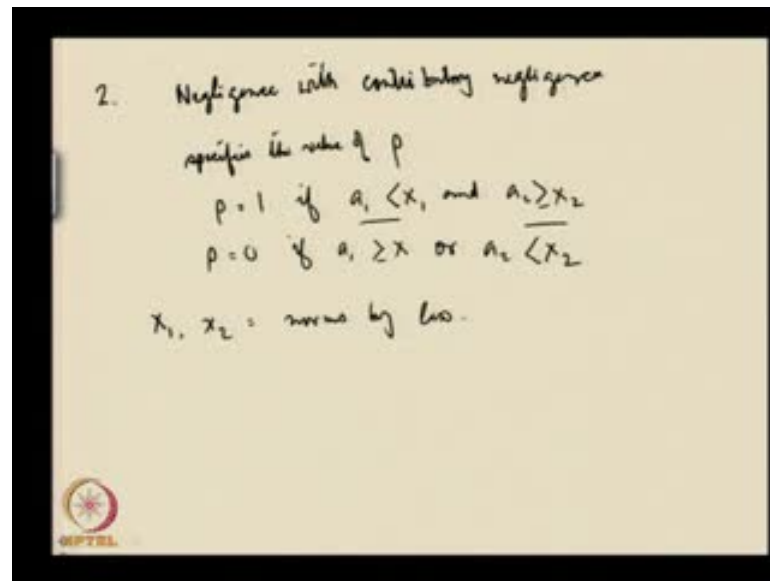 2. Negligence with contributory negligence
specifies the value of p
p = 1 if a₁ < x₁ and a₂ ≥ x₂
p = 0 if a₁ ≥ x or a₂ < x₂
x₁, x₂ = norms by law.
NPTEL